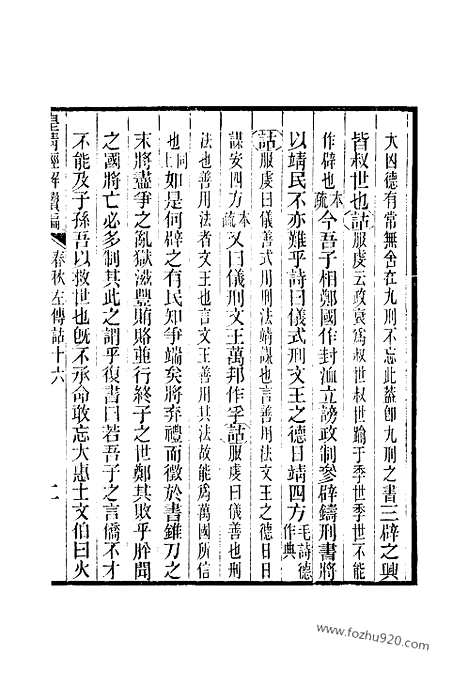 大凶德有常無舍在九刑不忘此蓋卽九刑之書三辟之興
皆叔世也詁服虔云政衰爲叔世叔世踰于季世季世不能
作辟也本疏今吾子相鄭國作封洫立謗政制參辟鑄刑書將
以靖民不亦難乎詩曰儀式刑文王之德日靖四方毛詩德作典
詁服虔曰儀善式用刑法靖謀也言善用法文王之德日日
謀安四方本疏又曰儀刑文王萬邦作孚詁服虔曰儀善也刑
法也善用法者文王也言文王善用其法故能爲萬國所信
也同上如是何辟之有民知爭端矣將弃禮而徵於書錐刀之
末將盡爭之亂獄滋豐賄賂並行終子之世鄭其敗乎肸聞
之國將亡必多制其此之謂乎復書曰若吾子之言僑不才
不能及子孫吾以救世也旣不承命敢忘大惠士文伯曰火
皇清經解續編
春秋左傳詁十六
二
www.fozhu920.com